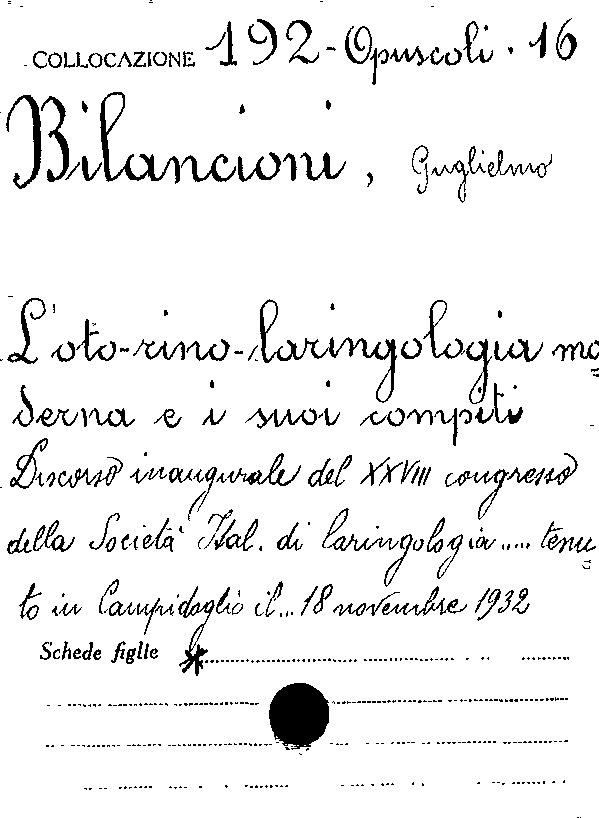 COLLOCAZIONE 192-Opuscoli. 16
Bilancioni, Guglielmo
L'oto-rino-laringologia mo
derna e i suoi compiti
Discorso inaugurale del XXVIII congresso
della Società Ital. di laringologia..... tenu
to in Campidoglio il... 18 novembre 1932
Schede figlie *